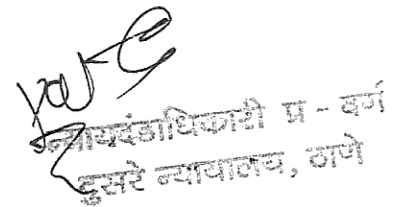 न्यायदंडाधिकारी प्र - वर्ग
दुसरे न्यायालय, ठाणे